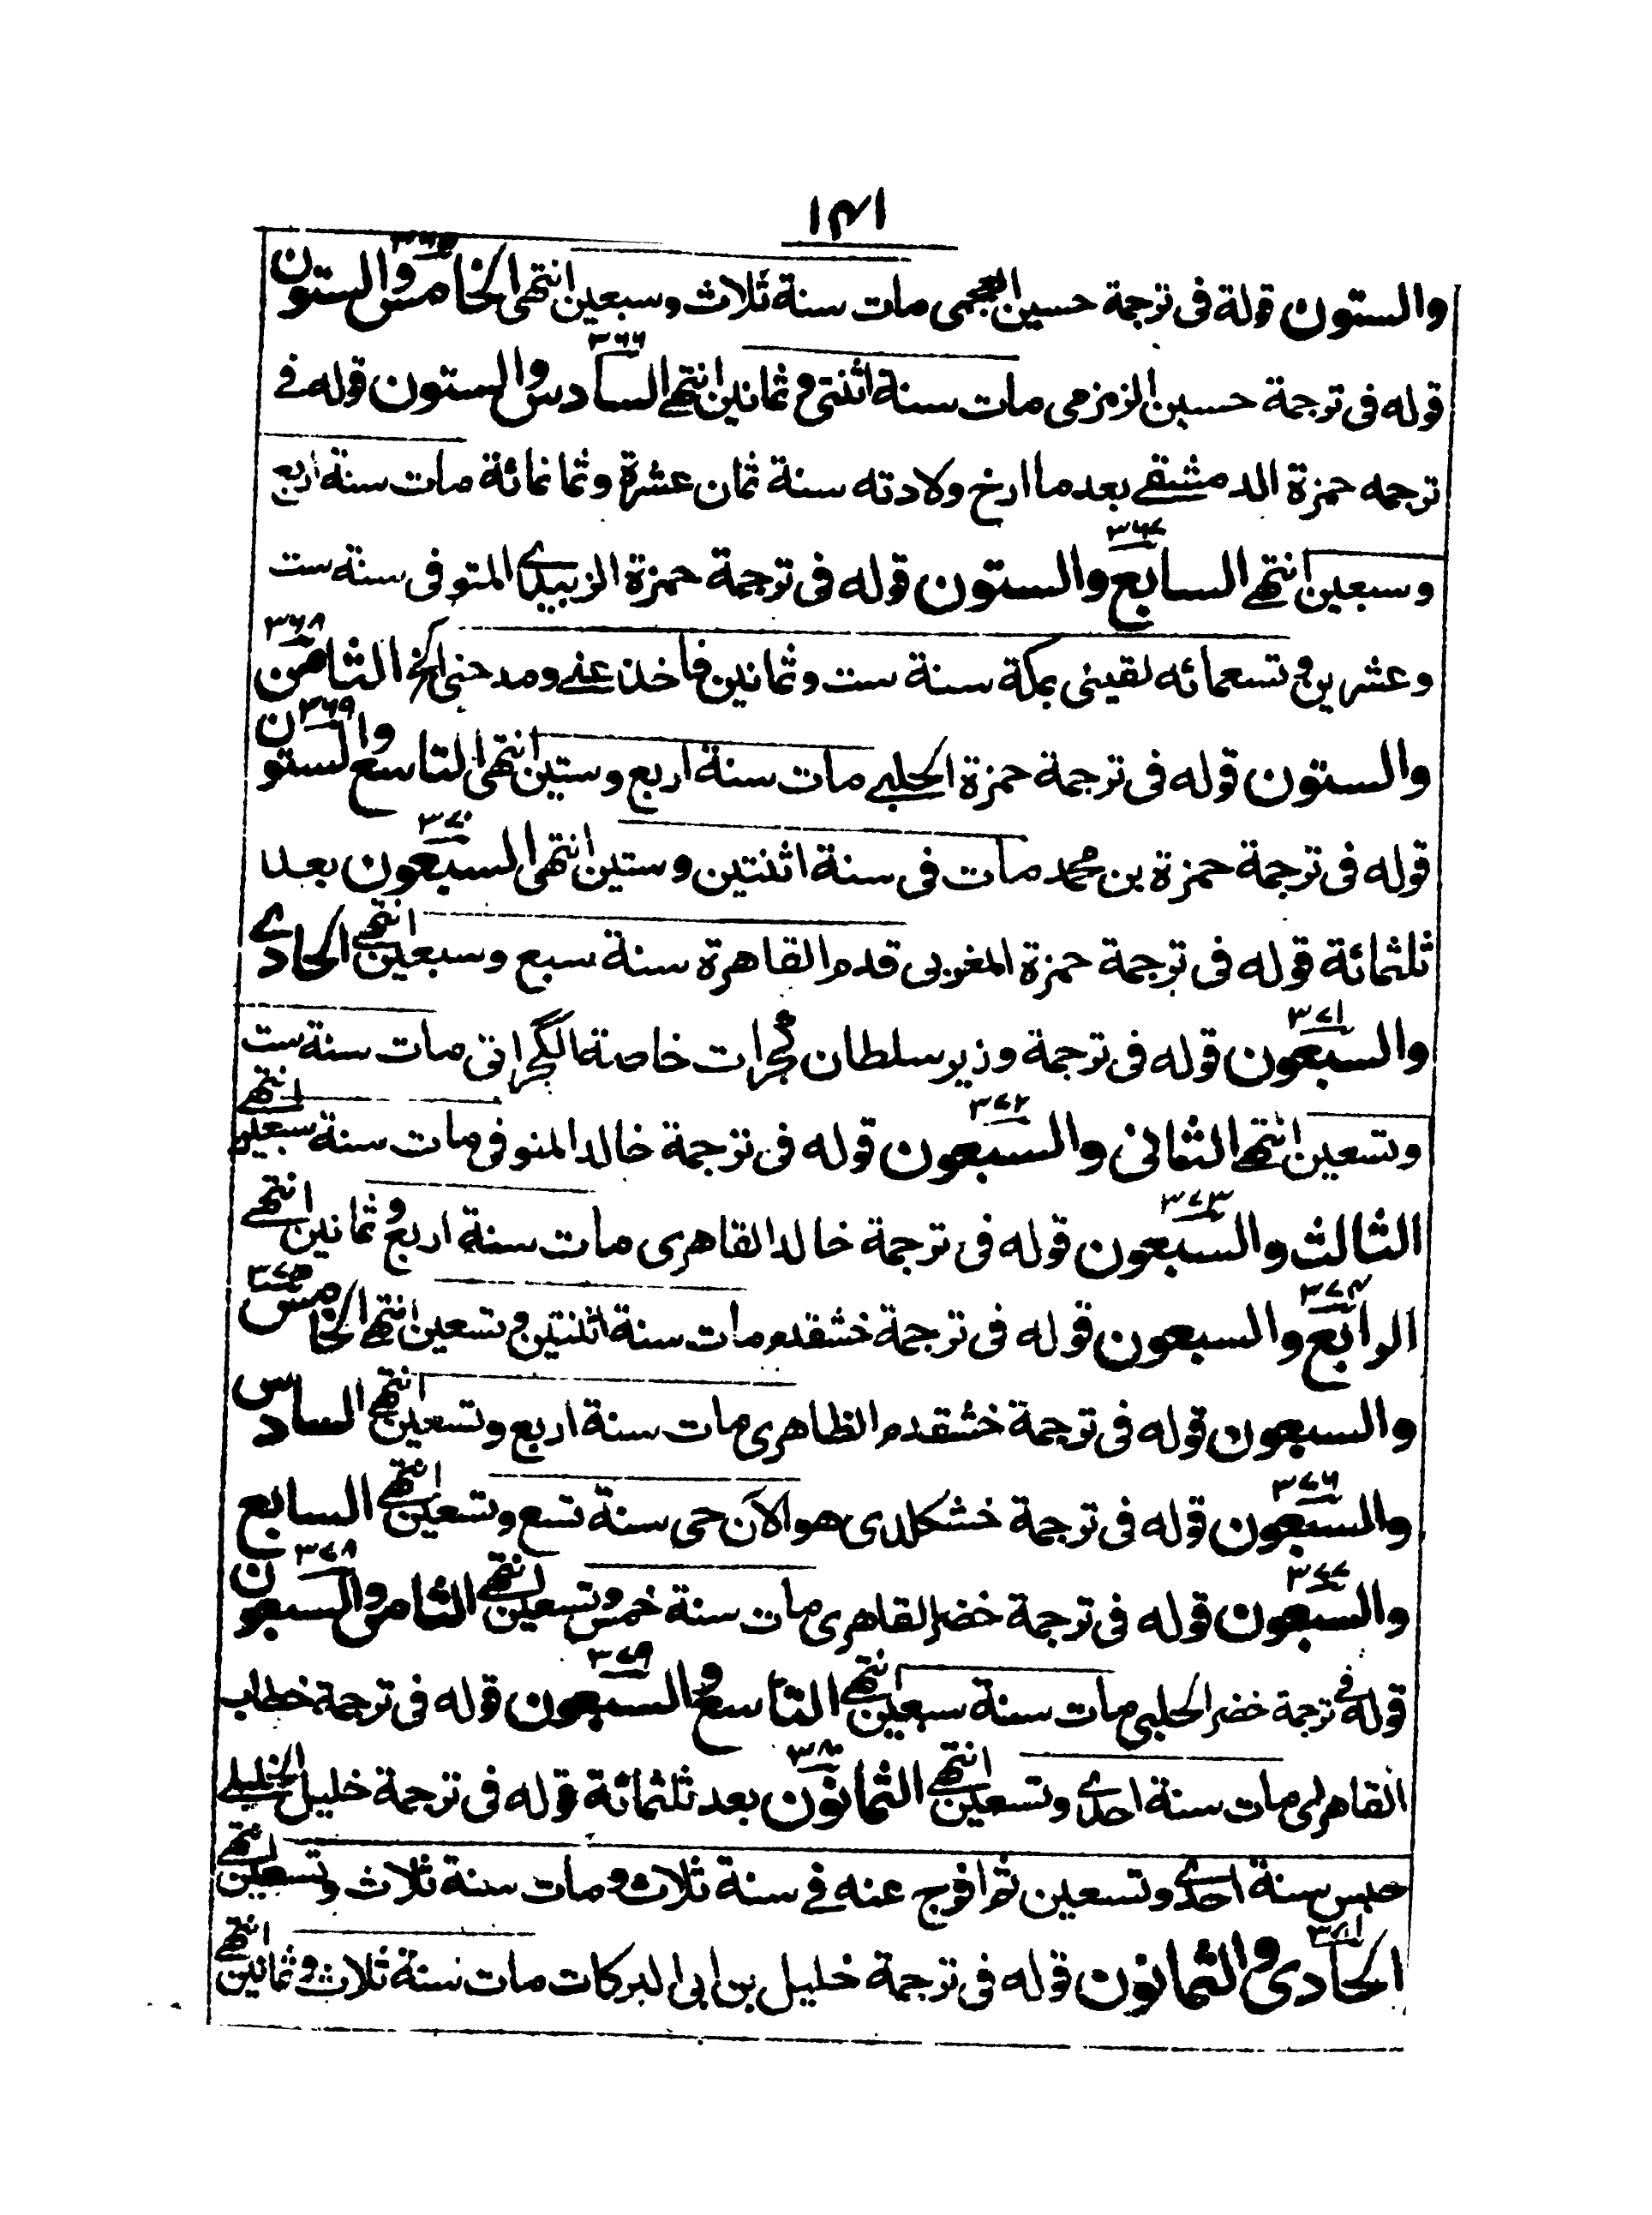 ۱۴۱
والستون قوله فى ترجمة حسين العجمى مات سنة ثلاث وسبعين انتهى الخامس والستون ۳۶۵
قوله فى ترجمة حسين الزمزمى مات سنة اثنتى وثمانين انتهے السادس والستون ۳۶۶ قوله فے
ترجمه حمزة الدمشقے بعد ما ارخ ولادته سنة ثمان عشرة وثمانمائة مات سنة اربع
وسبعين انتهے السابع والستون ۳۶۷ قوله فى ترجمة حمزة الزبيدے المتوفى سنة ست
وعشرين وتسعمائه لقينى بمكة سنة ست وثمانين فاخذ عنے ومدحنى الخ الثامن ۳۶۸
والستون قوله فى ترجمة حمزة الحلبے مات سنة اربع وستين انتهى التاسع والستون ۳۶۹
قوله فى ترجمة حمزة بن محمد مات فى سنة اثنتين وستين انتهى السبعون ۳۷۰ بعد
ثلثمائة قوله فى ترجمة حمزة المغربى قدم القاهرة سنة سبع وسبعين انتهے الحادے
والسبعون ۳۷۱ قوله فى ترجمة وزير سلطان گجرات خاصة الگجراتى مات سنة ست
وتسعين انتهے الثانى والسبعون ۳۷۲ قوله فى ترجمة خالد المنوفى مات سنة سبعين انتهے
الثالث والسبعون ۳۷۳ قوله فى ترجمة خالد القاهرى مات سنة اربع وثمانين انتهے
الرابع والسبعون ۳۷۴ قوله فى ترجمة خشقدم مات سنة اثنتين وتسعين انتهے الخامس ۳۷۵
والسبعون قوله فى ترجمة خشقدم الظاهرى مات سنة اربع وتسعين انتهے السادس
والسبعون ۳۷۶ قوله فى ترجمة خشكلدى هو الآن حى سنة تسع وتسعين انتهے السابع
والسبعون ۳۷۷ قوله فى ترجمة خضر القاهرى مات سنة خمس وتسعين انتهے الثامن والسبعون ۳۷۸
قوله فى ترجمة خضر الحلبى مات سنة سبعين انتهے التاسع والسبعون ۳۷۹ قوله فى ترجمة خطاب
القاهرى مات سنة احدے وتسعين انتهے الثمانون ۳۸۰ بعد ثلثمائة قوله فى ترجمة خليل الخليلے
حبس سنة احدے وتسعين ثم افرج عنه فے سنة ثلاث ومات سنة ثلاث وتسعين انتهے
الحادى والثمانون ۳۸۱ قوله فى ترجمة خليل بن ابى البركات مات سنة ثلاث وثمانين انتهے